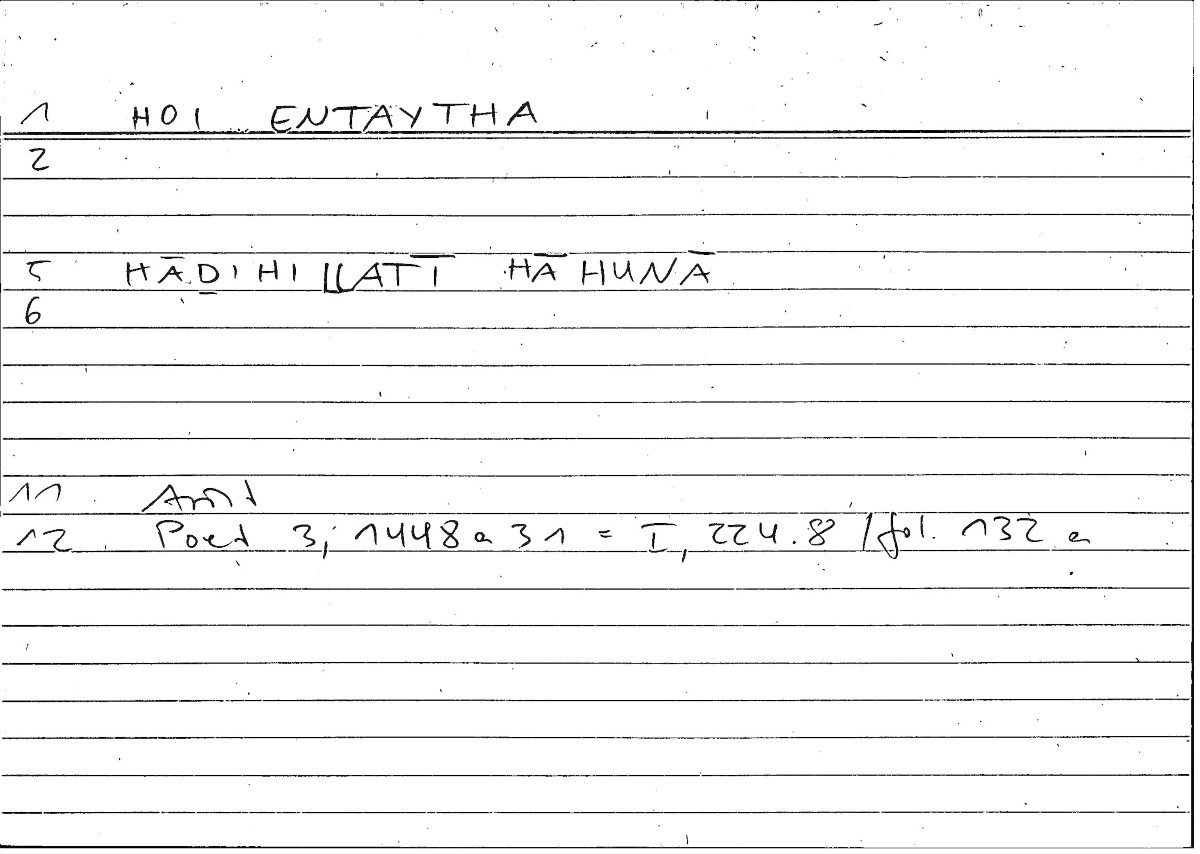 1 HOI ENTAYTHA
2
5 HĀḎIHI LLATĪ HĀHUNĀ
6
11 Arist
12 Poet 3; 1448 a 31 = I, 224.8 / fol. 132 a